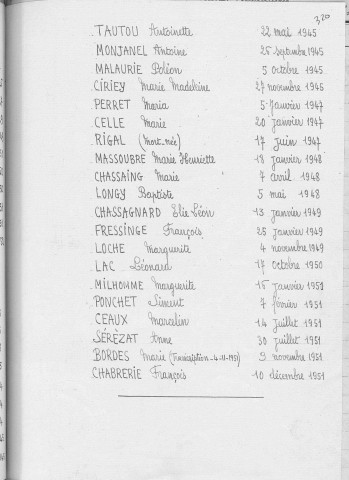 320
TAUTOU Antoinette 22 mai 1945
MONJANEL Antoine 25 septembre 1945
MALAURIE Poléon 5 octobre 1945
CIRIEY Marie Madeleine 27 novembre 1945
PERRET Maria 5 janvier 1947
CELLE Marie 20 janvier 1947
RIGAL (Mort-née) 17 juin 1947
MASSOUBRE Marie Henriette 18 janvier 1948
CHASSAING Marie 7 avril 1948
LONGY Baptiste 5 mai 1948
CHASSAGNARD Elie Léon 13 janvier 1949
FRESSINGE François 25 janvier 1949
LOCHE Marguerite 4 novembre 1949
LAC Léonard 17 octobre 1950
MILHOMME Marguerite 15 janvier 1951
PONCHET Siment 7 février 1951
CEAUX Marcelin 14 juillet 1951
SÉRÉZAT Anne 30 juillet 1951
BORDES Marie (Transcription - 4-11-1951) 9 novembre 1951
CHABRERIE François 10 décembre 1951